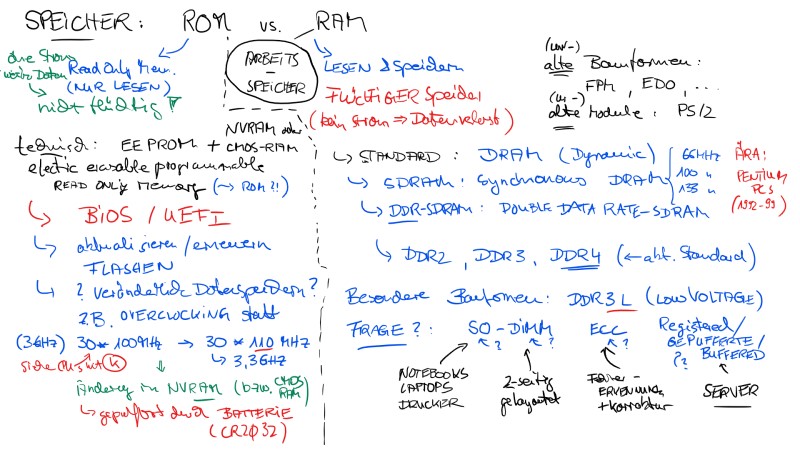 SPEICHER: ROM vs. RAM
ohne Strom
Read Only Mem.
(NUR LESEN)
nicht flüchtig
ARBEITS
-
SPEICHER
LESEN & Speichern
FLÜCHTIGER Speicher
(kein Strom ⇒ Datenverlust)
(uralt-)
alte Bauformen:
FPM, EDO, ...
alte Module: PS/2
technisch: EEPROM + NVRAM oder
CMOS-RAM
electric erasable programmable
READ ONLY Memory (→ ROM?!)
↳ BIOS / UEFI
↳ aktualisieren/erneuern
FLASHEN
↳ ? veränderlich Datenspeichern?
z.B. OVERCLOCKING statt
(3GHz) 30 * 100MHz → 30 * 110 MHz
↳ 3,3GHz
Änderung im NVRAM (bzw. CMOS
RAM)
↳ gepuffert durch BATTERIE
(CR2032)
↳ STANDARD: DRAM (Dynamic)
↳ SDRAM: Synchronous DRAM
↳ DDR-SDRAM: DOUBLE DATA RATE-SDRAM
66MHz
100 "
133 "
ÄRA:
PENTIUM
PCs
(1992-99)
↳ DDR2, DDR3, DDR4 (← akt. Standard)
Besondere Bauformen: DDR3L (LOW VOLTAGE)
FRAGE?: SO-DIMM ECC Registered/
GEPUFFERTE/
BUFFERED
? ? ? ??
NOTEBOOKS
LAPTOPS
DRUCKER
2-seitig
gelayoutet
Fehler-
ERKENNUNG
+korrektur
SERVER